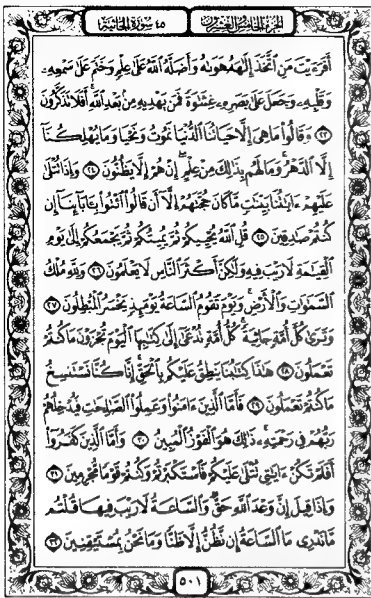 الجزء الخامس والعشرون
٤٥ سورة الجاثية
أَفَرَءَيْتَ مَنِ ٱتَّخَذَ إِلَٰهَهُۥ هَوَىٰهُ وَأَضَلَّهُ ٱللَّهُ عَلَىٰ عِلْمٍ وَخَتَمَ عَلَىٰ سَمْعِهِۦ
وَقَلْبِهِۦ وَجَعَلَ عَلَىٰ بَصَرِهِۦ غِشَٰوَةً فَمَن يَهْدِيهِ مِنۢ بَعْدِ ٱللَّهِ ۚ أَفَلَا تَذَكَّرُونَ
٢٣ وَقَالُوا۟ مَا هِىَ إِلَّا حَيَاتُنَا ٱلدُّنْيَا نَمُوتُ وَنَحْيَا وَمَا يُهْلِكُنَآ
إِلَّا ٱلدَّهْرُ ۚ وَمَا لَهُم بِذَٰلِكَ مِنْ عِلْمٍ ۖ إِنْ هُمْ إِلَّا يَظُنُّونَ ٢٤ وَإِذَا تُتْلَىٰ
عَلَيْهِمْ ءَايَٰتُنَا بَيِّنَٰتٍ مَّا كَانَ حُجَّتَهُمْ إِلَّآ أَن قَالُوا۟ ٱئْتُوا۟ بِـَٔابَآئِنَآ إِن
كُنتُمْ صَٰدِقِينَ ٢٥ قُلِ ٱللَّهُ يُحْيِيكُمْ ثُمَّ يُمِيتُكُمْ ثُمَّ يَجْمَعُكُمْ إِلَىٰ يَوْمِ
ٱلْقِيَٰمَةِ لَا رَيْبَ فِيهِ وَلَٰكِنَّ أَكْثَرَ ٱلنَّاسِ لَا يَعْلَمُونَ ٢٦ وَلِلَّهِ مُلْكُ
ٱلسَّمَٰوَٰتِ وَٱلْأَرْضِ ۚ وَيَوْمَ تَقُومُ ٱلسَّاعَةُ يَوْمَئِذٍ يَخْسَرُ ٱلْمُبْطِلُونَ ٢٧
وَتَرَىٰ كُلَّ أُمَّةٍ جَاثِيَةً ۚ كُلُّ أُمَّةٍ تُدْعَىٰٓ إِلَىٰ كِتَٰبِهَا ٱلْيَوْمَ تُجْزَوْنَ مَا كُنتُمْ
تَعْمَلُونَ ٢٨ هَٰذَا كِتَٰبُنَا يَنطِقُ عَلَيْكُم بِٱلْحَقِّ ۚ إِنَّا كُنَّا نَسْتَنسِخُ
مَا كُنتُمْ تَعْمَلُونَ ٢٩ فَأَمَّا ٱلَّذِينَ ءَامَنُوا۟ وَعَمِلُوا۟ ٱلصَّٰلِحَٰتِ فَيُدْخِلُهُمْ
رَبُّهُمْ فِى رَحْمَتِهِۦ ۚ ذَٰلِكَ هُوَ ٱلْفَوْزُ ٱلْمُبِينُ ٣٠ وَأَمَّا ٱلَّذِينَ كَفَرُوٓا۟
أَفَلَمْ تَكُنْ ءَايَٰتِى تُتْلَىٰ عَلَيْكُمْ فَٱسْتَكْبَرْتُمْ وَكُنتُمْ قَوْمًا مُّجْرِمِينَ ٣١
وَإِذَا قِيلَ إِنَّ وَعْدَ ٱللَّهِ حَقٌّ وَٱلسَّاعَةُ لَا رَيْبَ فِيهَا قُلْتُم
مَّا نَدْرِى مَا ٱلسَّاعَةُ إِن نَّظُنُّ إِلَّا ظَنًّا وَمَا نَحْنُ بِمُسْتَيْقِنِينَ ٣٢
٥٠١